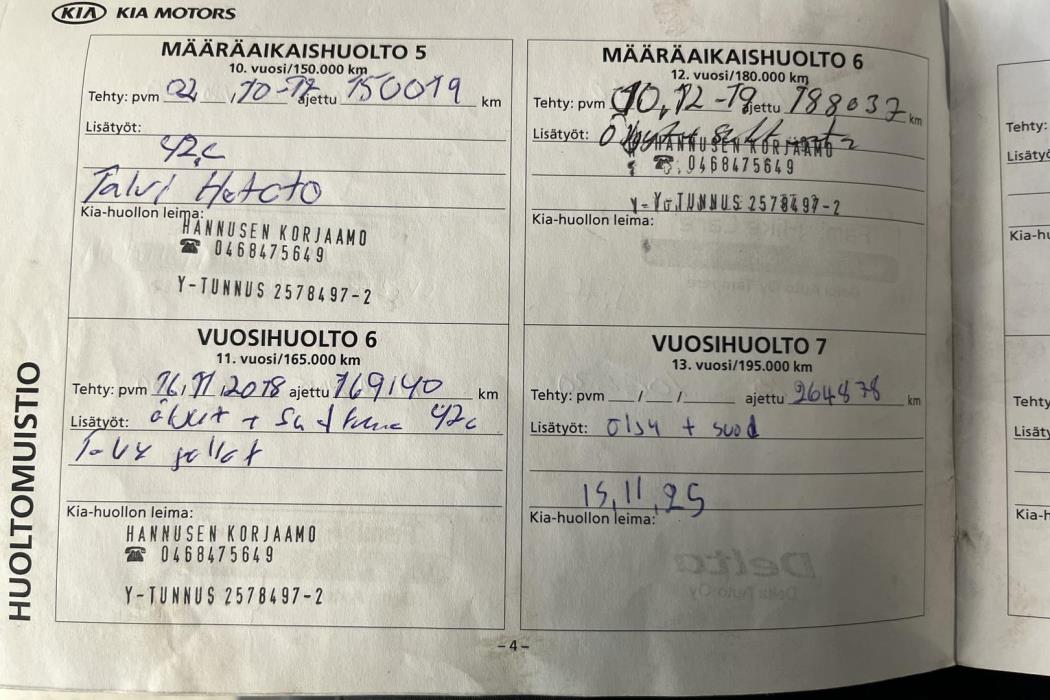 KIA KIA MOTORS
HUOLTOMUISTIO
MÄÄRÄAIKAISHUOLTO 5
10. vuosi/150.000 km
Tehty: pvm 02, 10-17 ajettu 150019 km
Lisätyöt:
42,c
Talvi
Kia-huollon leima:
HANNUSEN KORJAAMO
☎ 0468475649
Y-TUNNUS 2578497-2
MÄÄRÄAIKAISHUOLTO 6
12. vuosi/180.000 km
Tehty: pvm 10,12-19 ajettu 188037 km
Lisätyöt:
HANNUSEN KORJAAMO
☎ 0468475649
Y-TUNNUS 2578497-2
Kia-huollon leima:
VUOSIHUOLTO 6
11. vuosi/165.000 km
Tehty: pvm 16/11/2018 ajettu 169140 km
Lisätyöt: + 42c
Kia-huollon leima:
HANNUSEN KORJAAMO
☎ 0468475649
Y-TUNNUS 2578497-2
VUOSIHUOLTO 7
13. vuosi/195.000 km
Tehty: pvm / / ajettu 264878 km
Lisätyöt: öljy + suod
15,11,25
Kia-huollon leima:
-4-
Tehty:
Lisätyö
Kia-hu
Tehty
Lisät
Kia-h